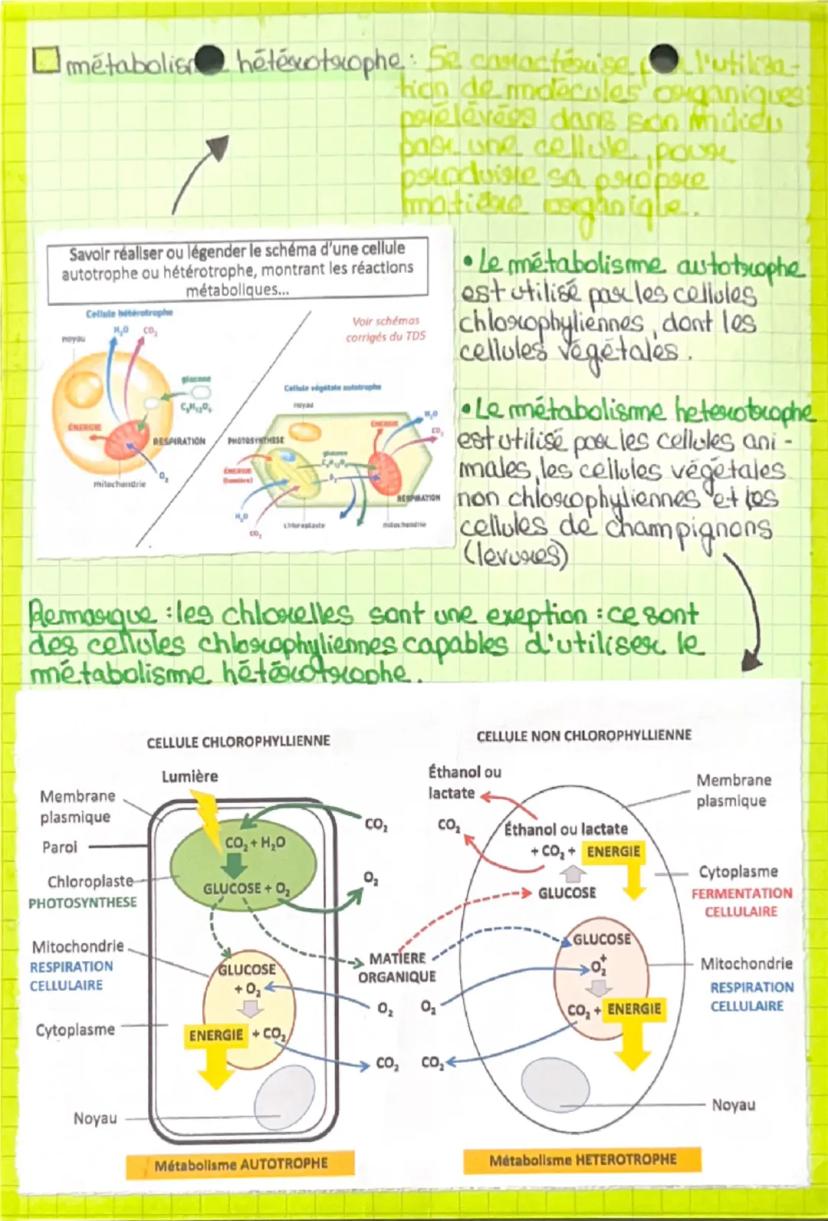 métabolis hétérotrophe : Se caractérise p l'utilisa-
tion de molécules organiques
prélévées dans son milieu
par une cellule, pour
produire sa propre
matière organique.
Savoir réaliser ou légender le schéma d'une cellule
autotrophe ou hétérotrophe, montrant les réactions
métaboliques...
Cellule hétérotrophe
H₂O CO₂
noyau
glucose
C₆H₁₂O₆
ÉNERGIE
RESPIRATION
mitochondrie
O₂
Voir schémas
corrigés du TD5
Cellule végétale autotrophe
noyau
H₂O
CO₂
ÉNERGIE
PHOTOSYNTHESE
glucose
C₆H₁₂O₆
O₂
ÉNERGIE
(lumière)
RESPIRATION
H₂O
CO₂
chloroplaste
mitochondrie
• Le métabolisme autotrophe
est utilisé par les cellules
chlorophyliennes, dont les
cellules végétales.
• Le métabolisme heterotrophe
est utilisé par les cellules ani-
males, les cellules végétales
non chlorophyliennes et les
cellules de champignons
(levures)
Remarque : les chlorelles sont une exeption : ce sont
des cellules chlorophyliennes capables d'utiliser le
métabolisme hétérotrophe.
CELLULE CHLOROPHYLLIENNE
Lumière
Membrane
plasmique
Paroi
Chloroplaste
PHOTOSYNTHESE
Mitochondrie
RESPIRATION
CELLULAIRE
Cytoplasme
Noyau
CO₂ + H₂O
GLUCOSE + O₂
GLUCOSE
+ O₂
ENERGIE + CO₂
CO₂
O₂
MATIERE
ORGANIQUE
O₂
CO₂
Métabolisme AUTOTROPHE
CELLULE NON CHLOROPHYLLIENNE
Éthanol ou
lactate
CO₂
Éthanol ou lactate
+ CO₂ + ENERGIE
GLUCOSE
GLUCOSE
+
O₂
CO₂ + ENERGIE
O₂
CO₂
Membrane
plasmique
Cytoplasme
FERMENTATION
CELLULAIRE
Mitochondrie
RESPIRATION
CELLULAIRE
Noyau
Métabolisme HETEROTROPHE